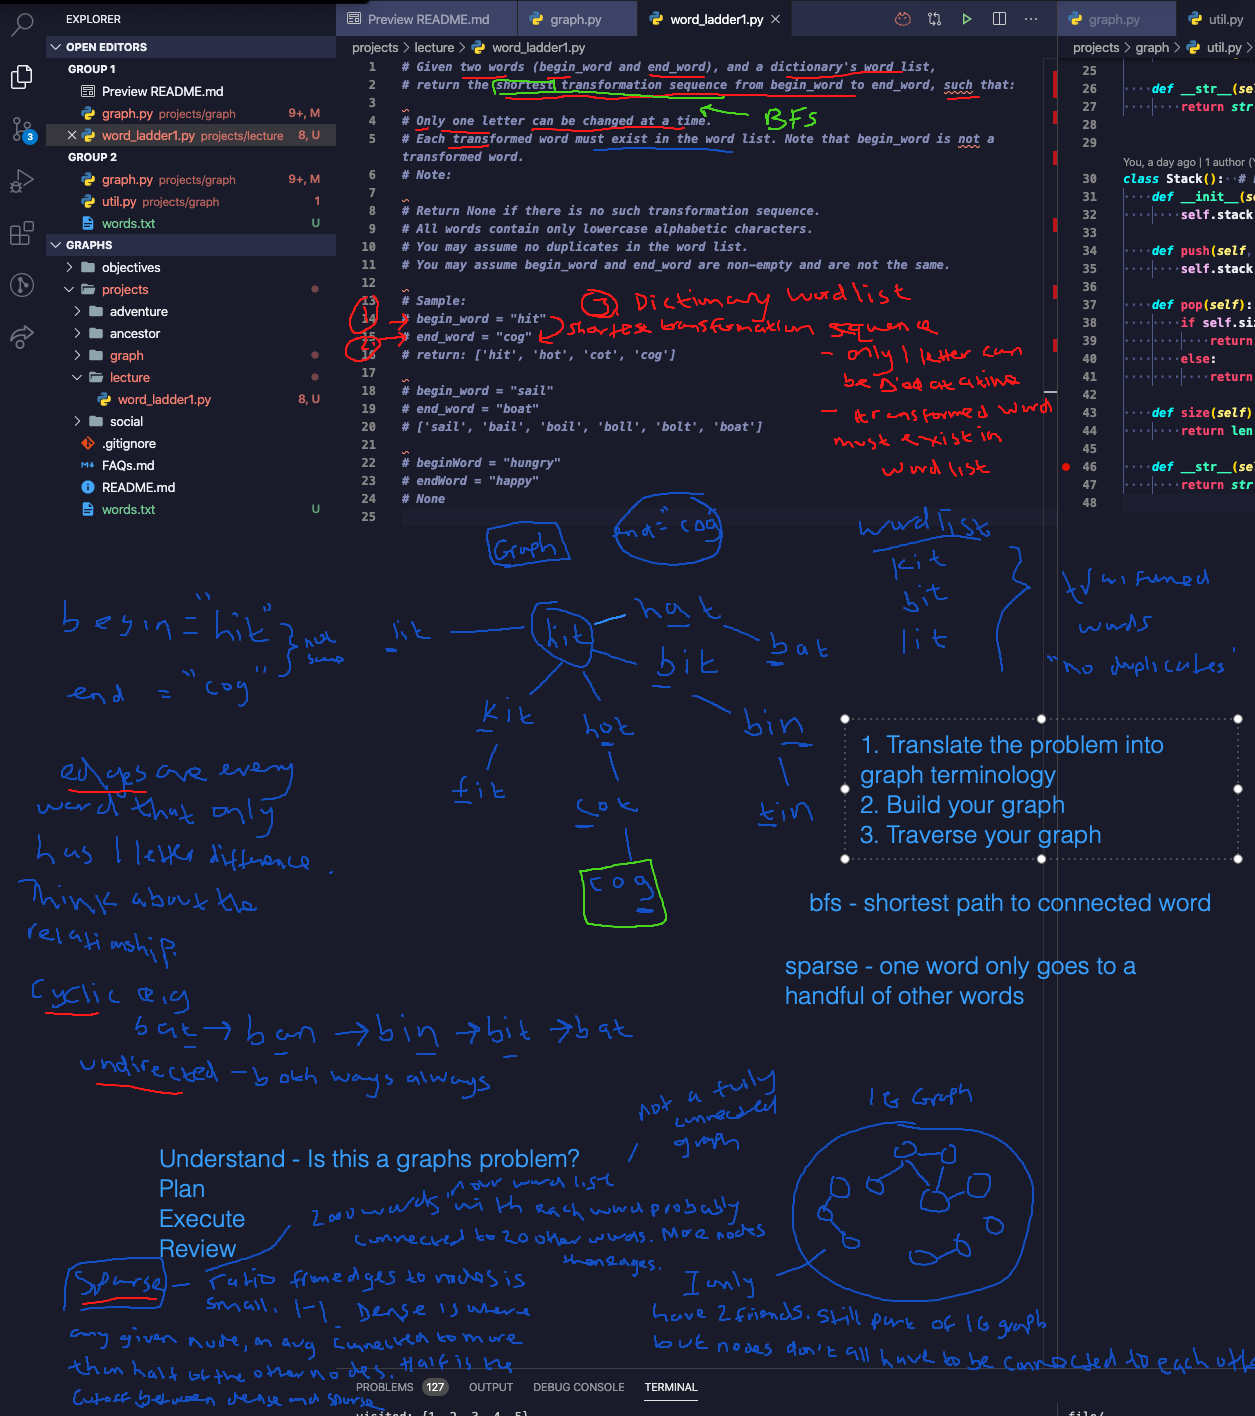 EXPLORER
OPEN EDITORS
GROUP 1
Preview README.md
graph.py projects/graph 9+, M
word_ladder1.py projects/lecture 8, U
GROUP 2
graph.py projects/graph 9+, M
util.py projects/graph 1
words.txt U
GRAPHS
objectives
projects
adventure
ancestor
graph
lecture
word_ladder1.py 8, U
social
.gitignore
FAQs.md
README.md
words.txt U
3
Preview README.md graph.py word_ladder1.py
projects > lecture > word_ladder1.py
1 # Given two words (begin_word and end_word), and a dictionary's word list,
2 # return the shortest transformation sequence from begin_word to end_word, such that:
3
4 # Only one letter can be changed at a time.
5 # Each transformed word must exist in the word list. Note that begin_word is not a
transformed word.
6 # Note:
7
8 # Return None if there is no such transformation sequence.
9 # All words contain only lowercase alphabetic characters.
10 # You may assume no duplicates in the word list.
11 # You may assume begin_word and end_word are non-empty and are not the same.
12
13 # Sample:
14 # begin_word = "hit"
15 # end_word = "cog"
16 # return: ['hit', 'hot', 'cot', 'cog']
17
18 # begin_word = "sail"
19 # end_word = "boat"
20 # ['sail', 'bail', 'boil', 'boll', 'bolt', 'boat']
21
22 # beginWord = "hungry"
23 # endWord = "happy"
24 # None
25
BFS
1
2
3 Dictionary word list
shortest transformation squence
- only 1 letter can
be
- transformed word
must exist in
word list
graph.py util.py
projects > graph > util.py >
25
26 def __str__(se
27 return str
28
29
You, a day ago | 1 author (
30 class Stack(): #
31 def __init__(s
32 self.stack
33
34 def push(self,
35 self.stack
36
37 def pop(self):
38 if self.si
39 return
40 else:
41 return
42
43 def size(self)
44 return len
45
46 def __str__(se
47 return str
48
Graph
end="cog"
word list
kit
bit
lit
words
"no duplicates"
begin="hit"
end = "cog"
not
lit
hit
hat
bat
bit
kit
hot
bin
fit
cot
tin
cog
edges are every
word that only
has 1 letter difference.
Think about the
relationship.
Cyclic e.g
bat → ban → bin → bit → bat
undirected - both ways always
1. Translate the problem into
graph terminology
2. Build your graph
3. Traverse your graph
bfs - shortest path to connected word
sparse - one word only goes to a
handful of other words
Understand - Is this a graphs problem?
Plan
Execute
Review
not a fully
connected
graph
IG Graph
in our word list
2000 words with each word probably
connected to 20 other words. More nodes
than edges.
Sparse - ratio from edges to nodes is
small. 1-1 Dense is where
any given node, on avg connected to more
than half of the other nodes. Half is the
cutoff between dense and sparse
I only
have 2 friends. still part of IG graph
but nodes don't all have to be connected to each othe
PROBLEMS 127 OUTPUT DEBUG CONSOLE TERMINAL
visited: {1, 2, 3, 4, 5}
file/